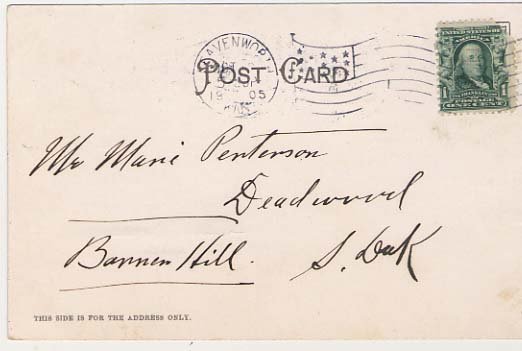 LEAVENWORTH
OCT
1905
KANS
POST CARD
1 FRANKLIN 1
POSTAGE
ONE CENT
Mr Marie Penterson
Deadwood
Bannen Hill. S. Dak
THIS SIDE IS FOR THE ADDRESS ONLY.